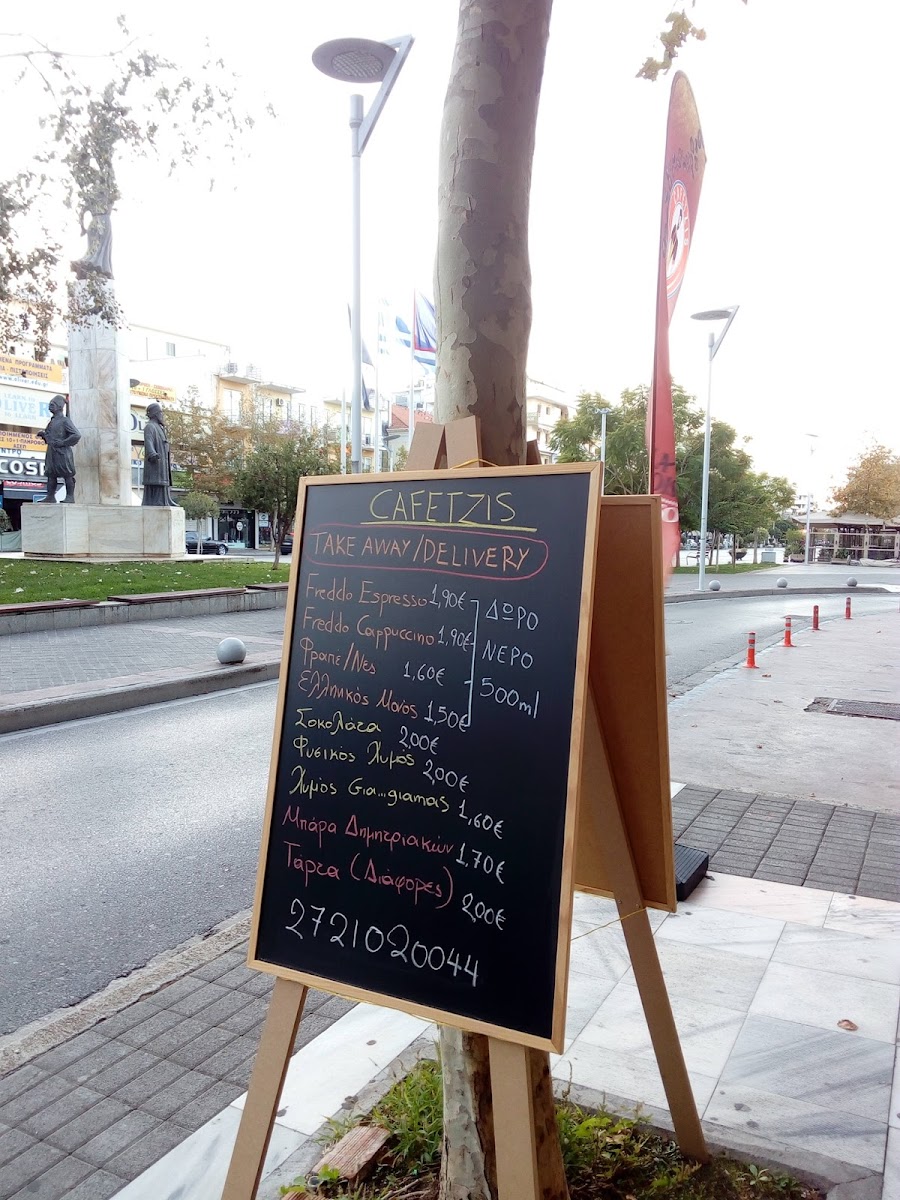 CAFETZIS
TAKE AWAY/DELIVERY
Freddo Espresso 1,90€
Freddo Cappuccino 1,90€
Φραπέ/Νες 1,60€
Ελληνικός Μονός 1,50€
ΔΩΡΟ
ΝΕΡΟ
500ml
Σοκολάτα 2,00€
Φυσικός Χυμός 2,00€
Χυμός Gia...giamas 1,60€
Μπάρα Δημητριακών 1,70€
Τάρτα (Διάφορες) 2,00€
2721020044
ΠΡΟΓΡΑΜΜΑΤΑ
OLIVE
COS